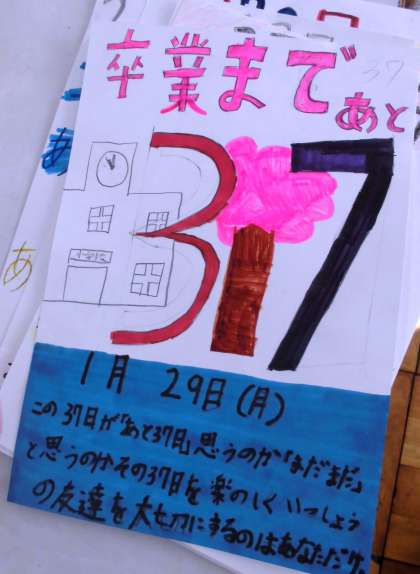 37
卒業まで
あと
37
小学校
1月 29日(月)
この37日が「あと37日」思うのか「まだまだ」
と思うのかその37日を楽のしくいっしょう
の友達を大切にするのはあなただけ。
あ
あ